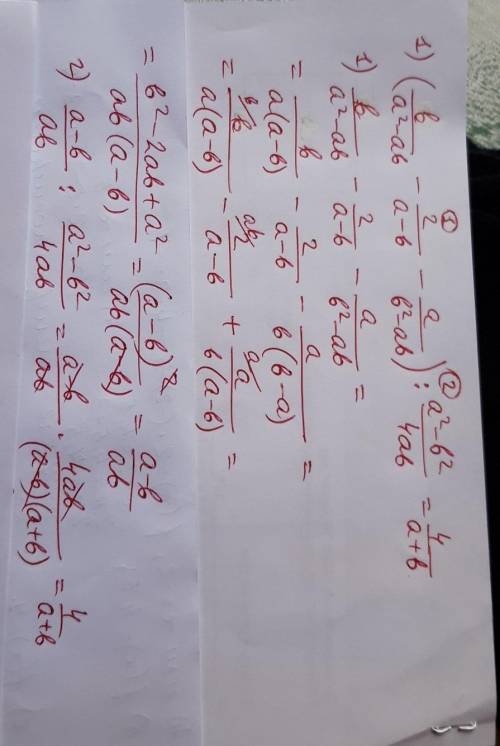 1) (b/(a²-ab) - 2/(a-b) - a/(b²-ab)) : (a²-b²)/(4ab) = 4/(a+b)
① ②
1) b/(a²-ab) - 2/(a-b) - a/(b²-ab) =
= b/(a(a-b)) - 2/(a-b) - a/(b(b-a)) =
= b/(a(a-b)) - 2/(a-b) + a/(b(a-b)) =
b/ ab/ a/
= (b²-2ab+a²)/(ab(a-b)) = (a-b)²/(ab(a-b)) = (a-b)/(ab)
2) (a-b)/(ab) : (a²-b²)/(4ab) = (a-b)/(ab) · 4ab/((a-b)(a+b)) = 4/(a+b)